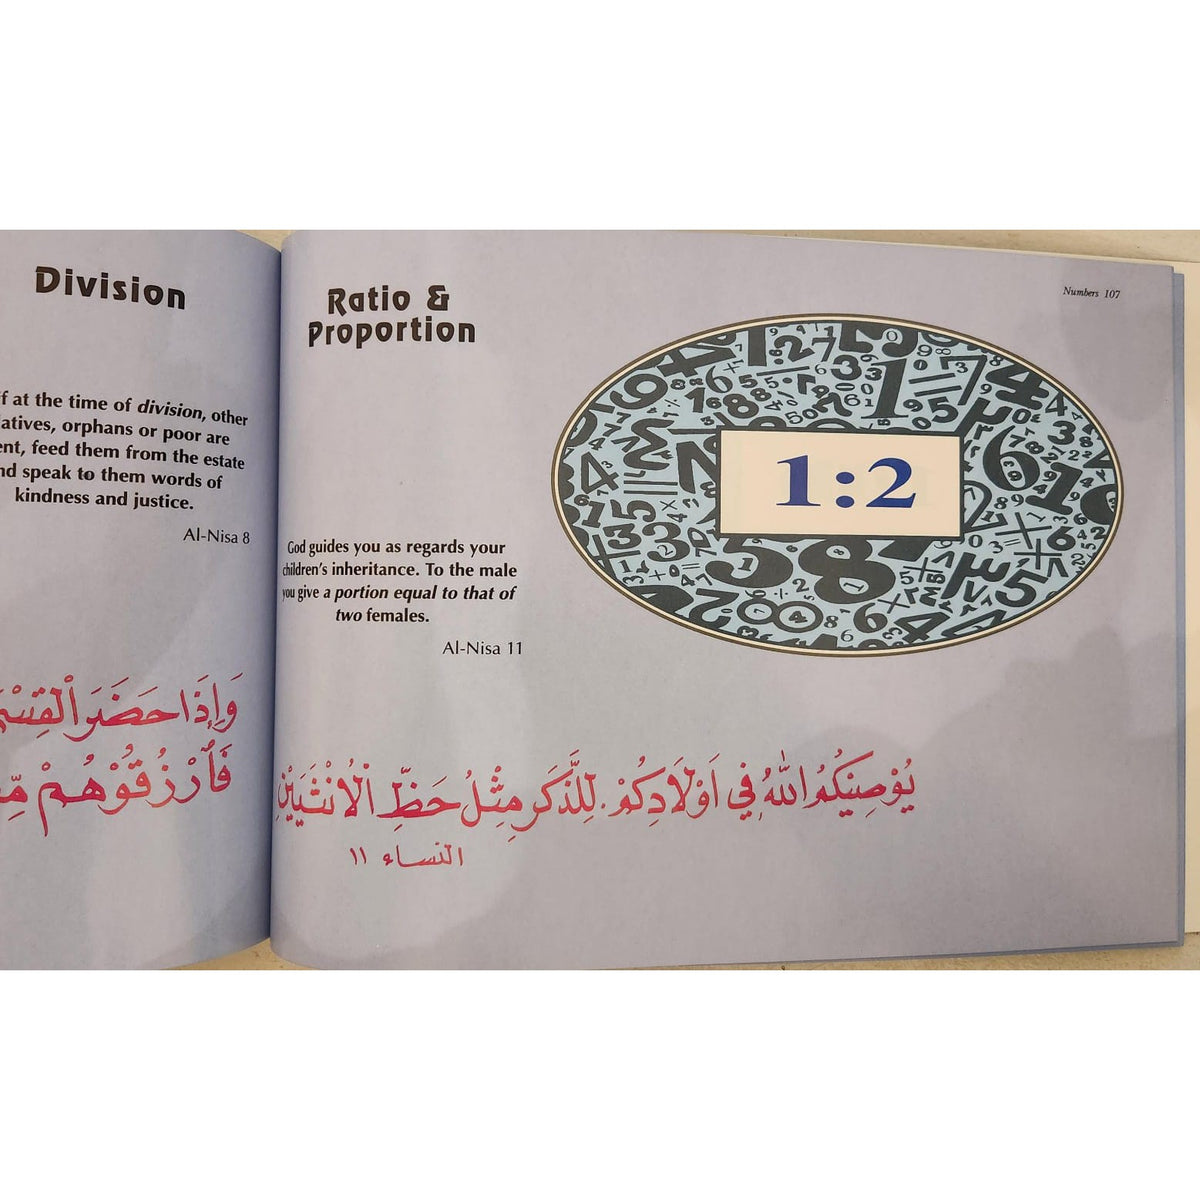 Division
f at the time of division, other
latives, orphans or poor are
ent, feed them from the estate
nd speak to them words of
kindness and justice.
Al-Nisa 8
وَإِذَا حَضَرَ الْقِسْمَ
فَارْزُقُوْهُمْ مِّ
Ratio &
Proportion
Numbers 107
1:2
God guides you as regards your
children's inheritance. To the male
you give a portion equal to that of
two females.
Al-Nisa 11
يُوْصِيْكُمُ اللهُ فِي اَوْلَادِكُمْ. لِلذَّكَرِ مِثْلُ حَظِّ الْاُنْثَيَيْنِ
النساء ١١